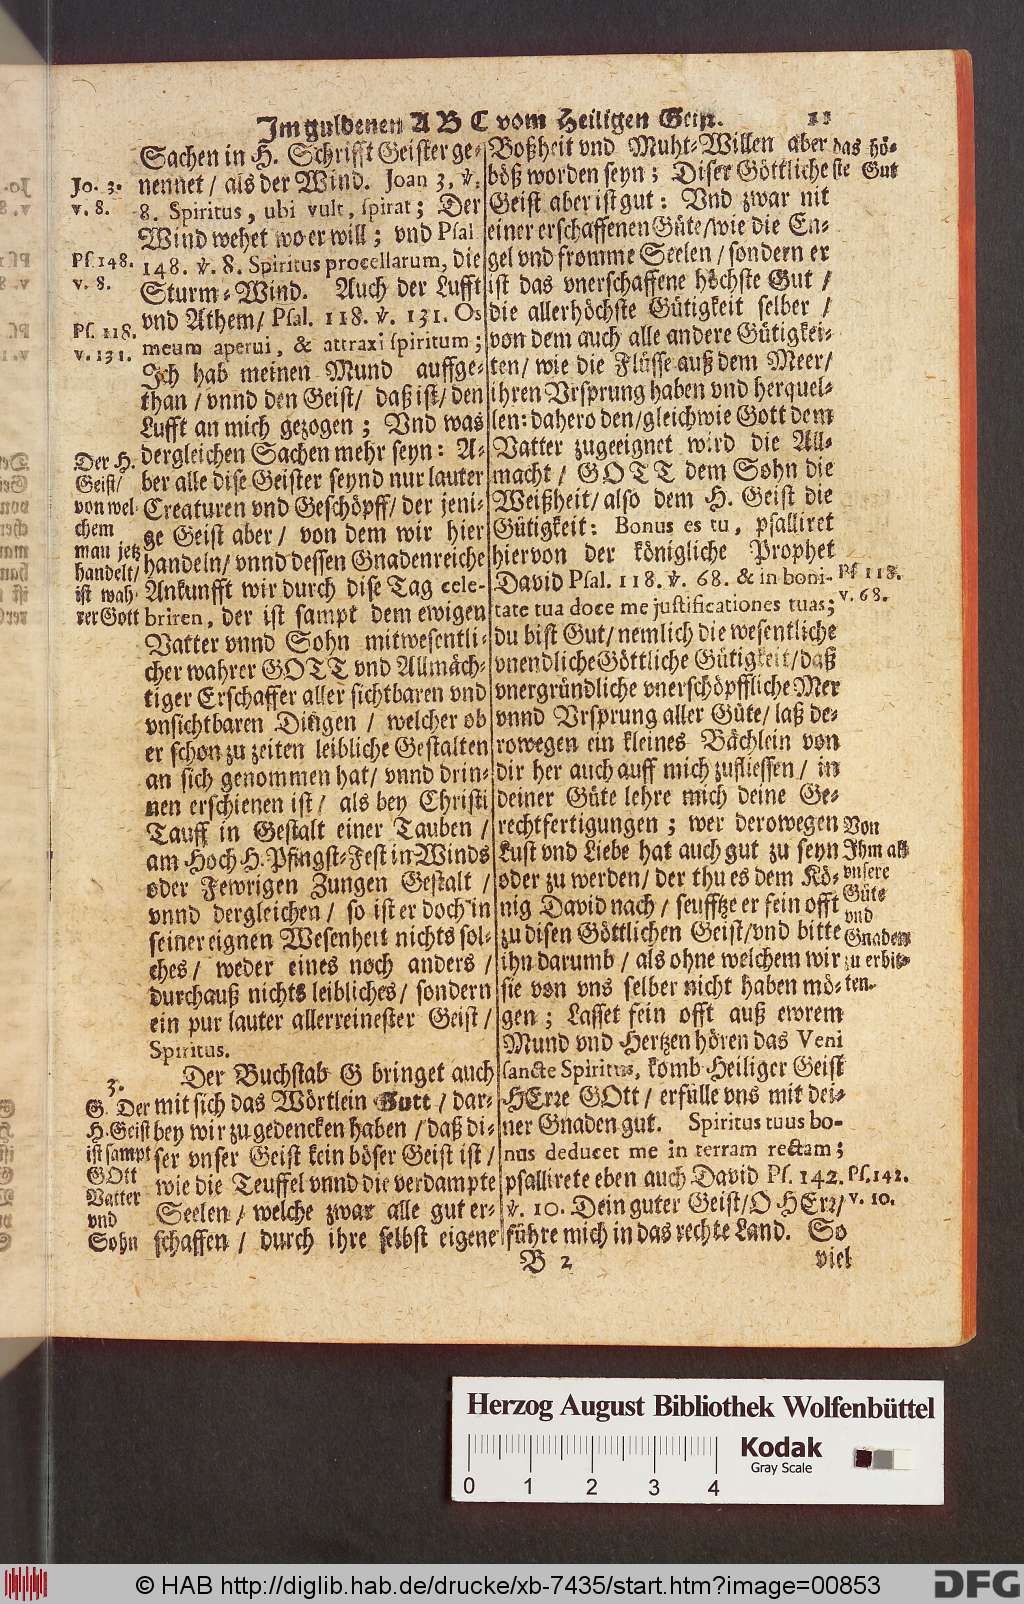 Im guldenen A B C vom Heiligen Geist. 11
Sachen in H. Schrifft Geister ge-
nennet / als der Wind. Joan 3. v.
8. Spiritus, ubi vult, spirat; Der
Wind wehet wo er will; vnd Psal
148. v. 8. Spiritus procellarum, die
Sturm-Wind. Auch der Lufft
vnd Athem/ Psal. 118. v. 131. Os
meum aperui, & attraxi spiritum;
Ich hab meinen Mund auffge-
than / vnnd den Geist/ daß ist/ den
Lufft an mich gezogen; Vnd was
dergleichen Sachen mehr seyn: A-
ber alle dise Geister seynd nur lauter
Creaturen vnd Geschöpff/ der jeni-
ge Geist aber/ von dem wir hier
handeln/ vnnd dessen Gnadenreiche
Ankunfft wir durch dise Tag cele-
briren, der ist sampt dem ewigen
Vatter vnnd Sohn mitwesentli-
cher wahrer GOTT vnd Allmäch-
tiger Erschaffer aller sichtbaren vnd
vnsichtbaren Dingen / welcher ob
er schon zu zeiten leibliche Gestalten
an sich genommen hat/ vnnd drin-
nen erschienen ist/ als bey Christi
Tauff in Gestalt einer Tauben /
am Hoch H. Pfingst-Fest in Winds
oder Fewrigen Zungen Gestalt /
vnnd dergleichen / so ist er doch in
seiner eignen Wesenheit nichts sol-
ches / weder eines noch anders /
durchauß nichts leibliches/ sondern
ein pur lauter allerreinester Geist /
Spiritus.
Der Buchstab G bringet auch
mit sich das Wörtlein Gott / dar-
bey wir zu gedencken haben / daß di-
ser vnser Geist kein böser Geist ist /
wie die Teuffel vnnd die verdampte
Seelen / welche zwar alle gut er-
schaffen / durch ihre selbst eigene
Jo. 3.
v. 8.
Ps. 148.
v. 8.
Ps. 118.
v. 131.
Der H.
Geist/
von wel-
chem
man jetz
handelt/
ist wah-
rer Gott
3.
G. Der
H. Geist
ist sampt
GOtt
Vatter
vnd
Sohn
Boßheit vnd Muht-Willen aber
böß worden seyn; Diser Göttliche
Geist aber ist gut: Vnd zwar nit
einer erschaffenen Güte/ wie die En-
gel vnd fromme Seelen / sondern er
ist das vnerschaffene höchste Gut /
die allerhöchste Gütigkeit selber /
von dem auch alle andere Gütigkei-
ten/ wie die Flüsse auß dem Meer/
ihren Vrsprung haben vnd herquel-
len: dahero den/ gleichwie Gott dem
Vatter zugeeignet wird die All-
macht / GOTT dem Sohn die
Weißheit/ also dem H. Geist die
Gütigkeit: Bonus es tu, psalliret
hiervon der königliche Prophet
David Psal. 118. v. 68. & in boni-
tate tua doce me justificationes tuas;
du bist Gut/ nemlich die wesentliche
vnendliche Göttliche Gütigkeit/ daß
vnergründliche vnerschöpffliche Mer
vnnd Vrsprung aller Güte/ laß de-
rowegen ein kleines Bächlein von
dir her auch auff mich zufliessen / in
deiner Güte lehre mich deine Ge-
rechtfertigungen; wer derowegen
Lust vnd Liebe hat auch gut zu seyn
oder zu werden/ der thu es dem Kö-
nig David nach / seufftze er fein offt
zu disen Göttlichen Geist/ vnd bitte
ihn darumb / als ohne welchem wir
sie von vns selber nicht haben mö-
gen; Lasset fein offt auß ewrem
Mund vnd Hertzen hören das Veni
sancte Spiritus, komb Heiliger Geist
HErre GOtt / erfülle vns mit dei-
ner Gnaden gut. Spiritus tuus bo-
nus deducet me in terram rectam;
psallirete eben auch David Ps. 142.
v. 10. Dein guter Geist/ O HErr/
führe mich in das rechte Land. So
das hö-
ste Gut
Ps 118.
v. 68.
Von
Ihm all
vnsere
Güte
vnd
Gnaden
zu erbit-
ten.
Ps. 142.
v. 10.
B 2
viel
Herzog August Bibliothek Wolfenbüttel
Kodak
Gray Scale
0 1 2 3 4
© HAB http://diglib.hab.de/drucke/xb-7435/start.htm?image=00853
DFG